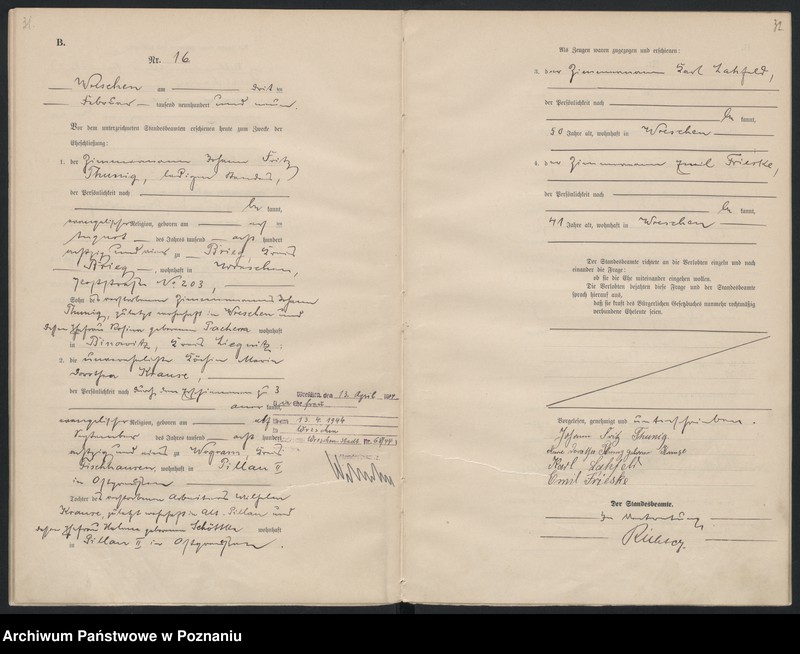 31
B.
Nr. 16
Wreschen am drit ten
Februar tausend neunhundert und neun.
Vor dem unterzeichneten Standesbeamten erschienen heute zum Zwecke der
Eheschließung:
1. der Zimmermann Johann Fritz
Thunig, ledigen Standes,
der Persönlichkeit nach
be kannt,
evangelischer Religion, geboren am elf ten
August des Jahres tausend acht hundert
achtzig und eins zu Brieg, Kreis
Brieg, wohnhaft in Wreschen,
Poststraße No 203,
Sohn des verstorbenen Zimmermanns Johann
Thunig, zuletzt wohnhaft in Wreschen und
dessen Ehefrau Rosina geborenen wohnhaft
in Kreis Liegnitz
2. die unverehelichte Köchin Maria
Dorothea Krause,
der Persönlichkeit nach durch den Zimmermann zu 3
aner kannt,
evangelischer Religion, geboren am
September des Jahres tausend acht hundert
achtzig und eins zu Kreis
Fischhausen, wohnhaft in Pillau II
in Ostpreußen
Tochter des verstorbenen Arbeiters Wilhelm
Krause, zuletzt wohnhaft in Alt-Pillau und
dessen Ehefrau geborenen wohnhaft
in Pillau II in Ostpreußen.
Wreschen, den 13. April
13. 4. 1944
Wreschen
32
Als Zeugen waren zugezogen und erschienen:
3. der Zimmermann Karl Lahfeld,
der Persönlichkeit nach
be kannt,
50 Jahre alt, wohnhaft in Wreschen
4. der Zimmermann Emil Frieske,
der Persönlichkeit nach
be kannt,
41 Jahre alt, wohnhaft in Wreschen
Der Standesbeamte richtete an die Verlobten einzeln und nach
einander die Frage:
ob sie die Ehe miteinander eingehen wollen.
Die Verlobten bejahten diese Frage und der Standesbeamte
sprach hierauf aus,
daß sie kraft des Bürgerlichen Gesetzbuchs nunmehr rechtmäßig
verbundene Eheleute seien.
Vorgelesen, genehmigt und unterschrieben.
Johann Fritz Thunig.
Dorothea Thunig geborene Krause
Karl Lahfeld
Emil Frieske
Der Standesbeamte.
In Vertretung
Archiwum Państwowe w Poznaniu